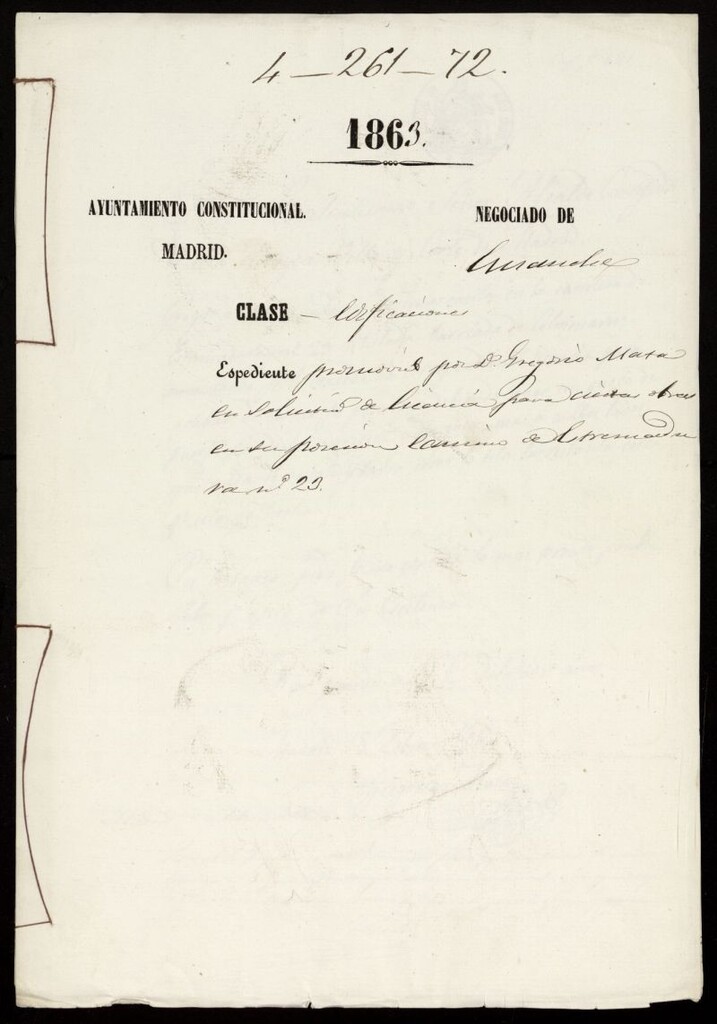 4 — 261 — 72.
1863.
AYUNTAMIENTO CONSTITUCIONAL.
MADRID.
NEGOCIADO DE
Ensanche
CLASE — Edificaciones
Espediente promovido por D. Gregorio Mata
en solicitud de licencia para ciertas obras
en su posesion Camino de Estremadu
ra nº 23.